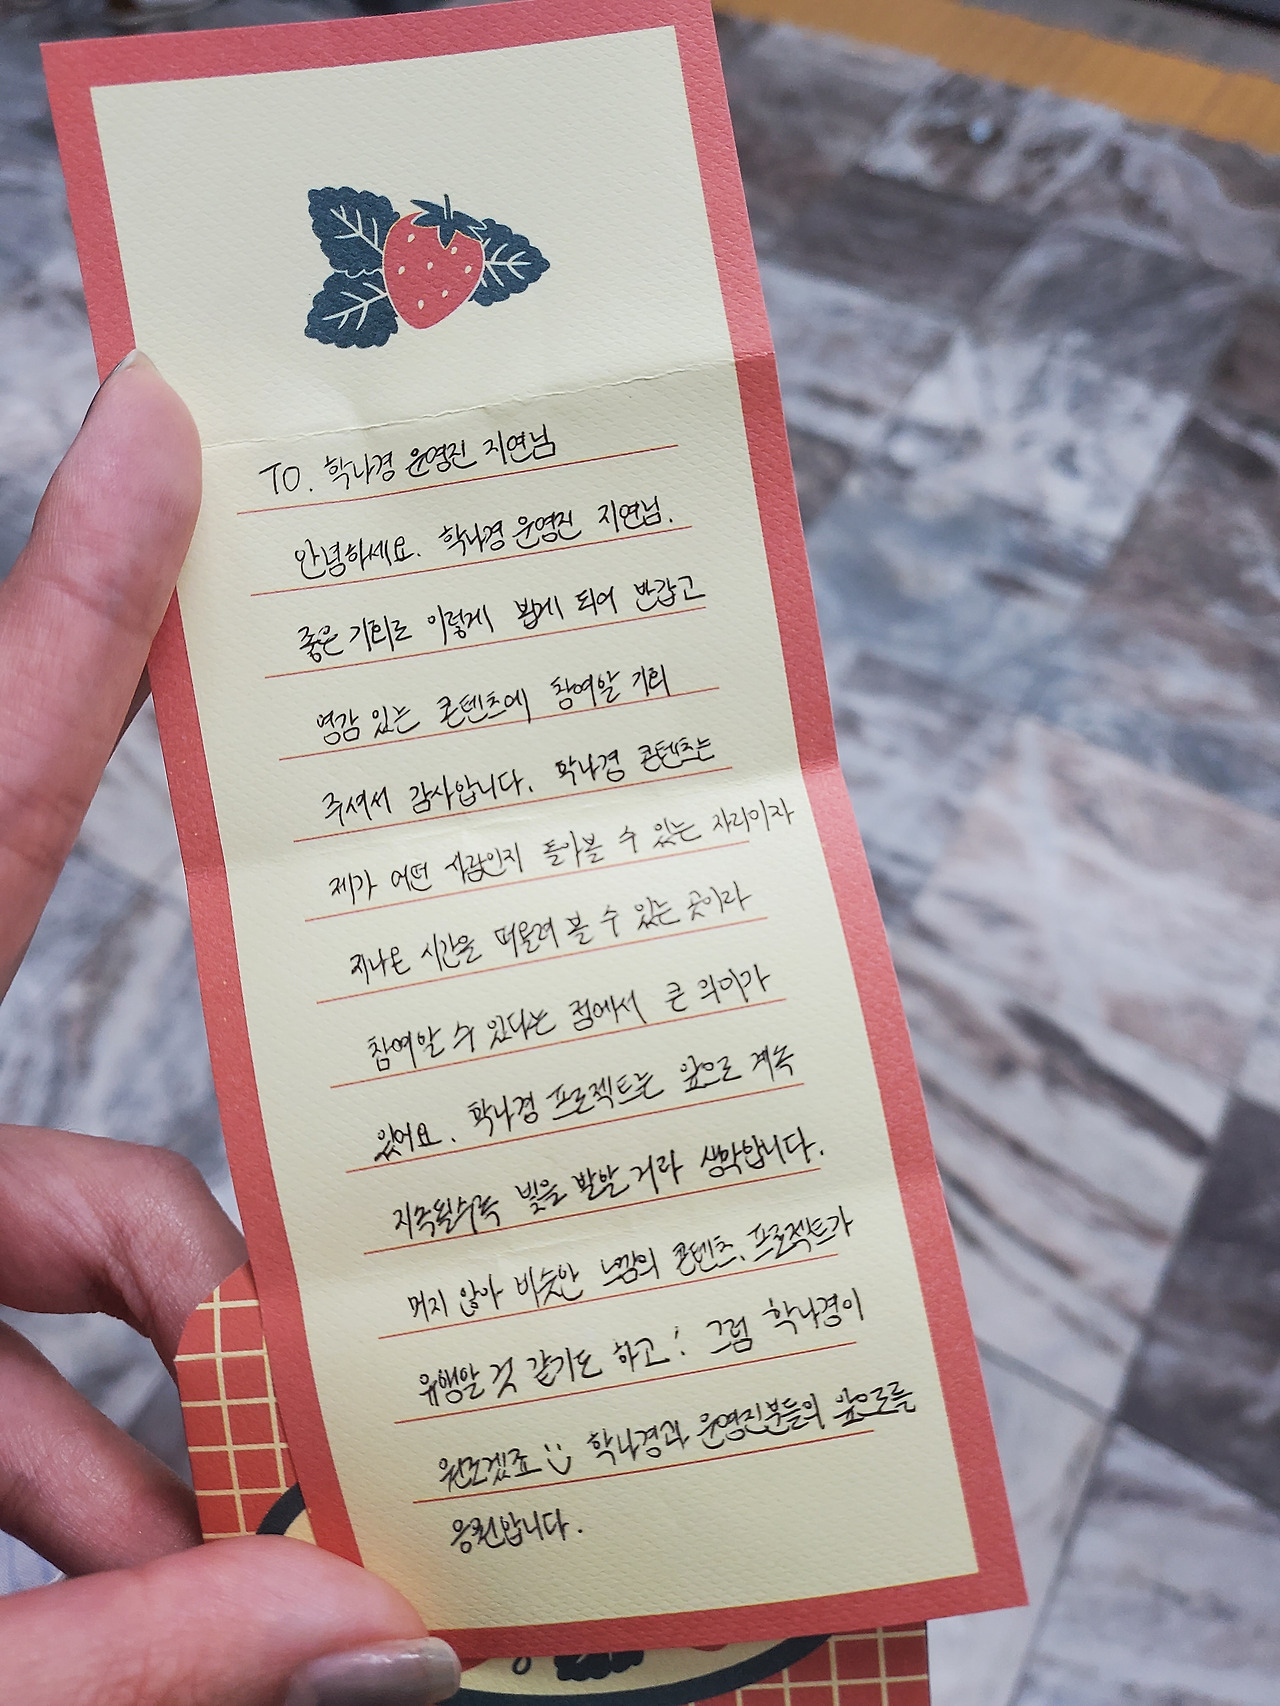 TO. 학나경 운영진 지연님
안녕하세요. 학나경 운영진 지연님.
좋은 기회로 이렇게 뵙게 되어 반갑고
영감 있는 콘텐츠에 참여할 기회
주셔서 감사합니다. 학나경 콘텐츠는
제가 어떤 사람인지 돌아볼 수 있는 자리이자
지나온 시간을 떠올려 볼 수 있는 곳이라
참여할 수 있다는 점에서 큰 의미가
있어요. 학나경 프로젝트는 앞으로 계속
지속될수록 빛을 발할 거라 생각합니다.
머지 않아 비슷한 느낌의 콘텐츠, 프로젝트가
유행할 것 같기도 하고! 그럼 학나경이
원조겠죠 학나경과 운영진분들의 앞으로를
응원합니다.